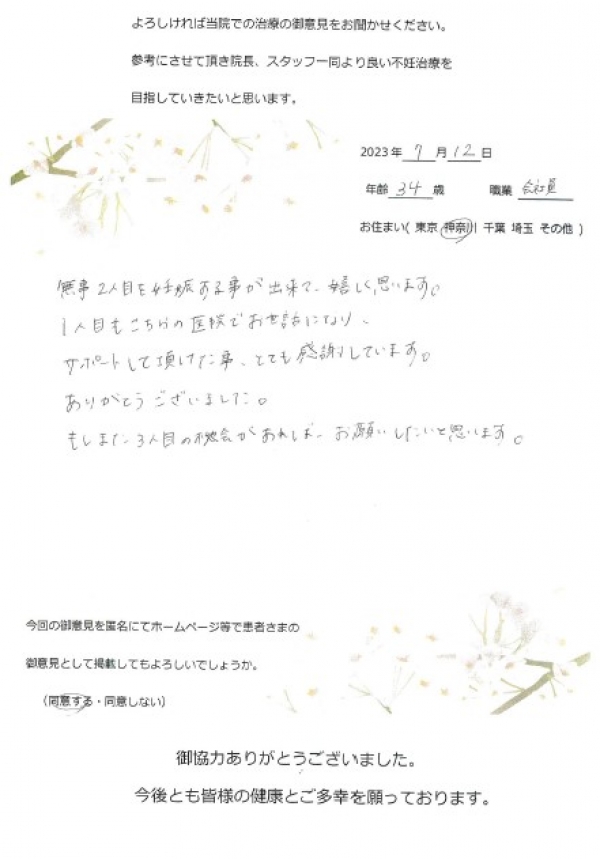 よろしければ当院での治療の御意見をお聞かせください。
参考にさせて頂き院長、スタッフ一同より良い不妊治療を
目指していきたいと思います。
2023年 7 月 12 日
年齢 34 歳 職業 会社員
お住まい( 東京 神奈川 千葉 埼玉 その他 )
無事2人目を妊娠する事が出来て、嬉しく思います。
1人目もこちらの医院でお世話になり、
サポートして頂けた事、とても感謝しています。
ありがとうございました。
もしまた3人目の機会があれば、お願いしたいと思います。
今回の御意見を匿名にてホームページ等で患者さまの
御意見として掲載してもよろしいでしょうか。
（同意する・同意しない）
御協力ありがとうございました。
今後とも皆様の健康とご多幸を願っております。